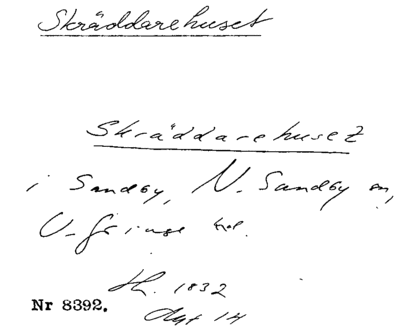 Skräddarehuset
Skräddarehuset
i Sandby, N. Sandby sn,
V. Göinge hd.
Hf. 1832
Akt 14
Nr 8392.